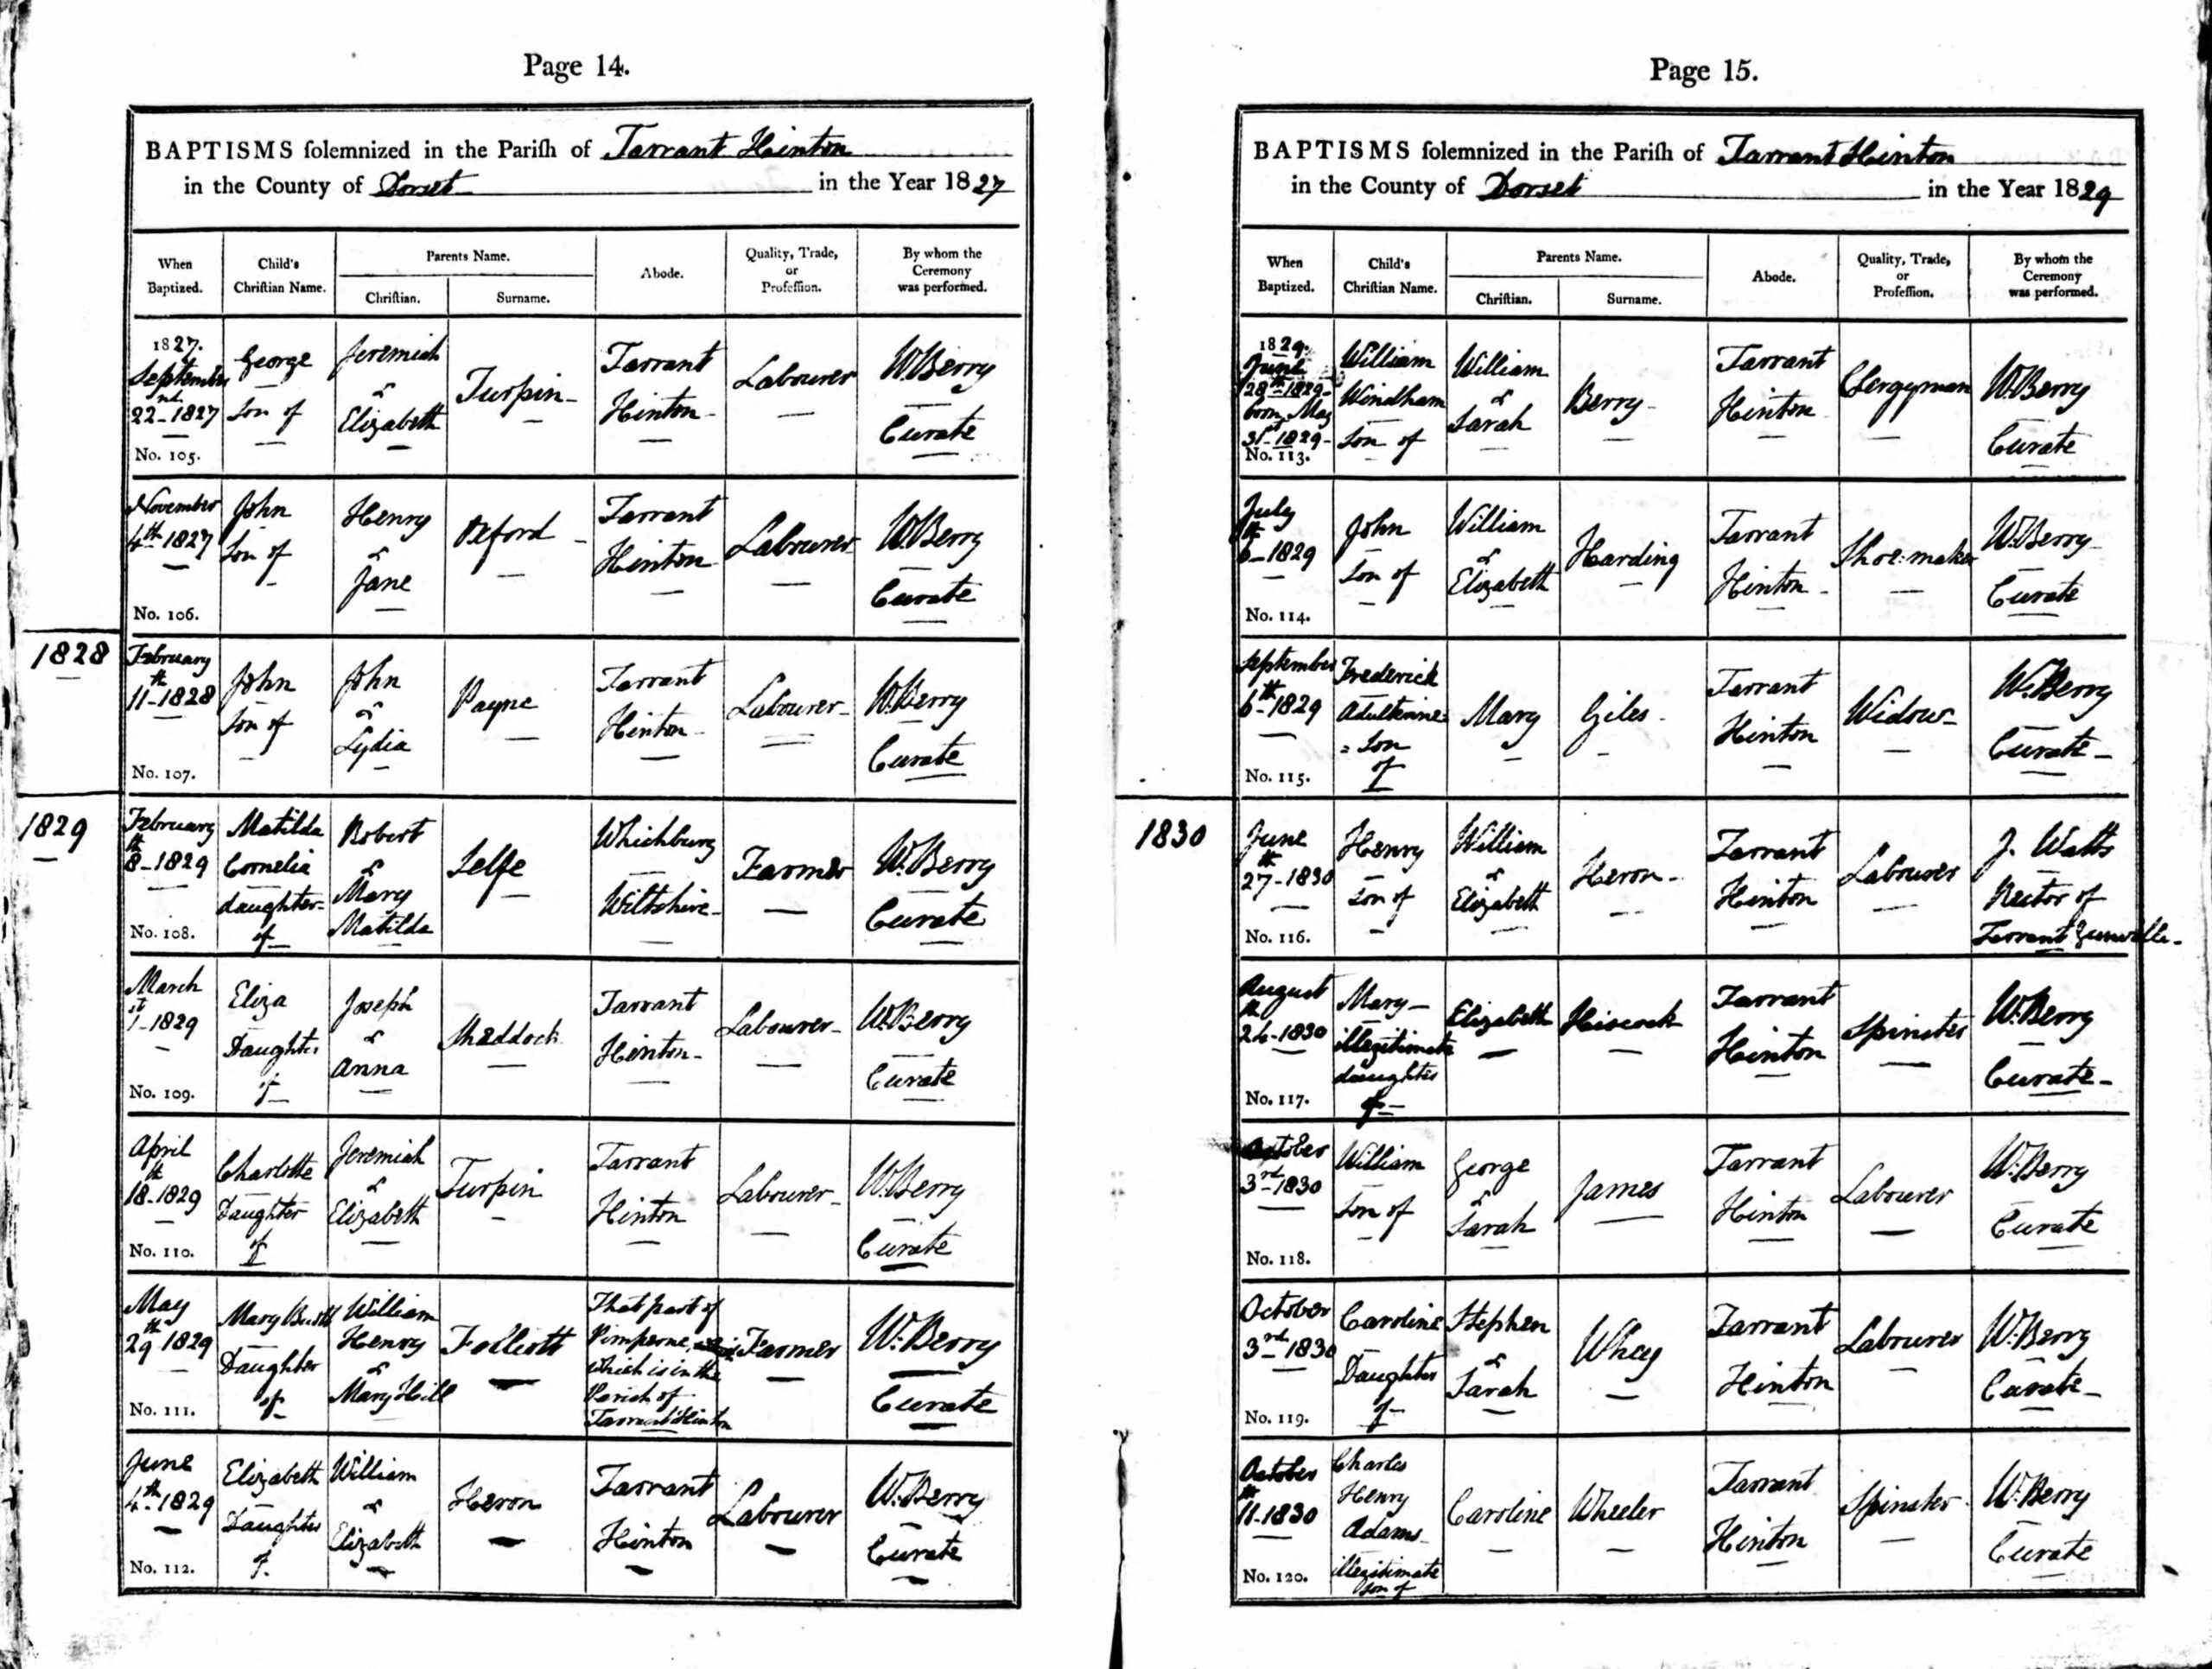 Page 14.
BAPTISMS solemnized in the Parish of Tarrant Hinton
in the County of Dorset in the Year 1827
When Baptized.
Child's Christian Name.
Parents Name.
Christian.
Surname.
Abode.
Quality, Trade, or Profession.
By whom the Ceremony was performed.
1827.
September
22nd 1827
No. 105.
George
Son of
Jeremiah
&
Elizabeth
Turpin
Tarrant
Hinton
Labourer
W. Berry
Curate
November
4th 1827
No. 106.
John
Son of
Henry
&
Jane
Oxford
Tarrant
Hinton
Labourer
W. Berry
Curate
1828
February
11th 1828
No. 107.
John
Son of
John
&
Lydia
Payne
Tarrant
Hinton
Labourer
W. Berry
Curate
1829
February
8th 1829
No. 108.
Matilda
Cornelia
daughter
of
Robert
&
Mary
Matilda
Selfe
Whichbury
Wiltshire
Farmer
W. Berry
Curate
March
1st 1829
No. 109.
Eliza
Daughter
of
Joseph
&
Anna
Maddock
Tarrant
Hinton
Labourer
W. Berry
Curate
April
18th 1829
No. 110.
Charlotte
Daughter
of
Jeremiah
&
Elizabeth
Turpin
Tarrant
Hinton
Labourer
W. Berry
Curate
May
29th 1829
No. 111.
Mary
Daughter
of
William
Henry
&
Mary Hill
Folliott
That part of
Pimperne,
which is in the
Parish of
Tarrant Hinton
Farmer
W. Berry
Curate
June
4th 1829
No. 112.
Elizabeth
Daughter
of
William
&
Elizabeth
Heron
Tarrant
Hinton
Labourer
W. Berry
Curate
Page 15.
BAPTISMS solemnized in the Parish of Tarrant Hinton
in the County of Dorset in the Year 1829
When Baptized.
Child's Christian Name.
Parents Name.
Christian.
Surname.
Abode.
Quality, Trade, or Profession.
By whom the Ceremony was performed.
1829.
June
28th 1829
born May
31st 1829
No. 113.
William
Windham
Son of
William
&
Sarah
Berry
Tarrant
Hinton
Clergyman
W. Berry
Curate
July
6th 1829
No. 114.
John
Son of
William
&
Elizabeth
Harding
Tarrant
Hinton
Shoe-maker
W. Berry
Curate
September
6th 1829
No. 115.
Frederick
Adulterine
= Son
of
Mary
Giles
Tarrant
Hinton
Widow
W. Berry
Curate
1830
June
27th 1830
No. 116.
Henry
Son of
William
&
Elizabeth
Heron
Tarrant
Hinton
Labourer
J. Watts
Rector of
Tarrant Gunville
August
24th 1830
No. 117.
Mary
illegitimate
daughter
of
Elizabeth
Hiscock
Tarrant
Hinton
Spinster
W. Berry
Curate
October
3rd 1830
No. 118.
William
Son of
George
&
Sarah
James
Tarrant
Hinton
Labourer
W. Berry
Curate
October
3rd 1830
No. 119.
Caroline
Daughter
of
Stephen
&
Sarah
Tarrant
Hinton
Labourer
W. Berry
Curate
October
11th 1830
No. 120.
Charles
Henry
Adams
illegitimate
son of
Caroline
Wheeler
Tarrant
Hinton
Spinster
W. Berry
Curate